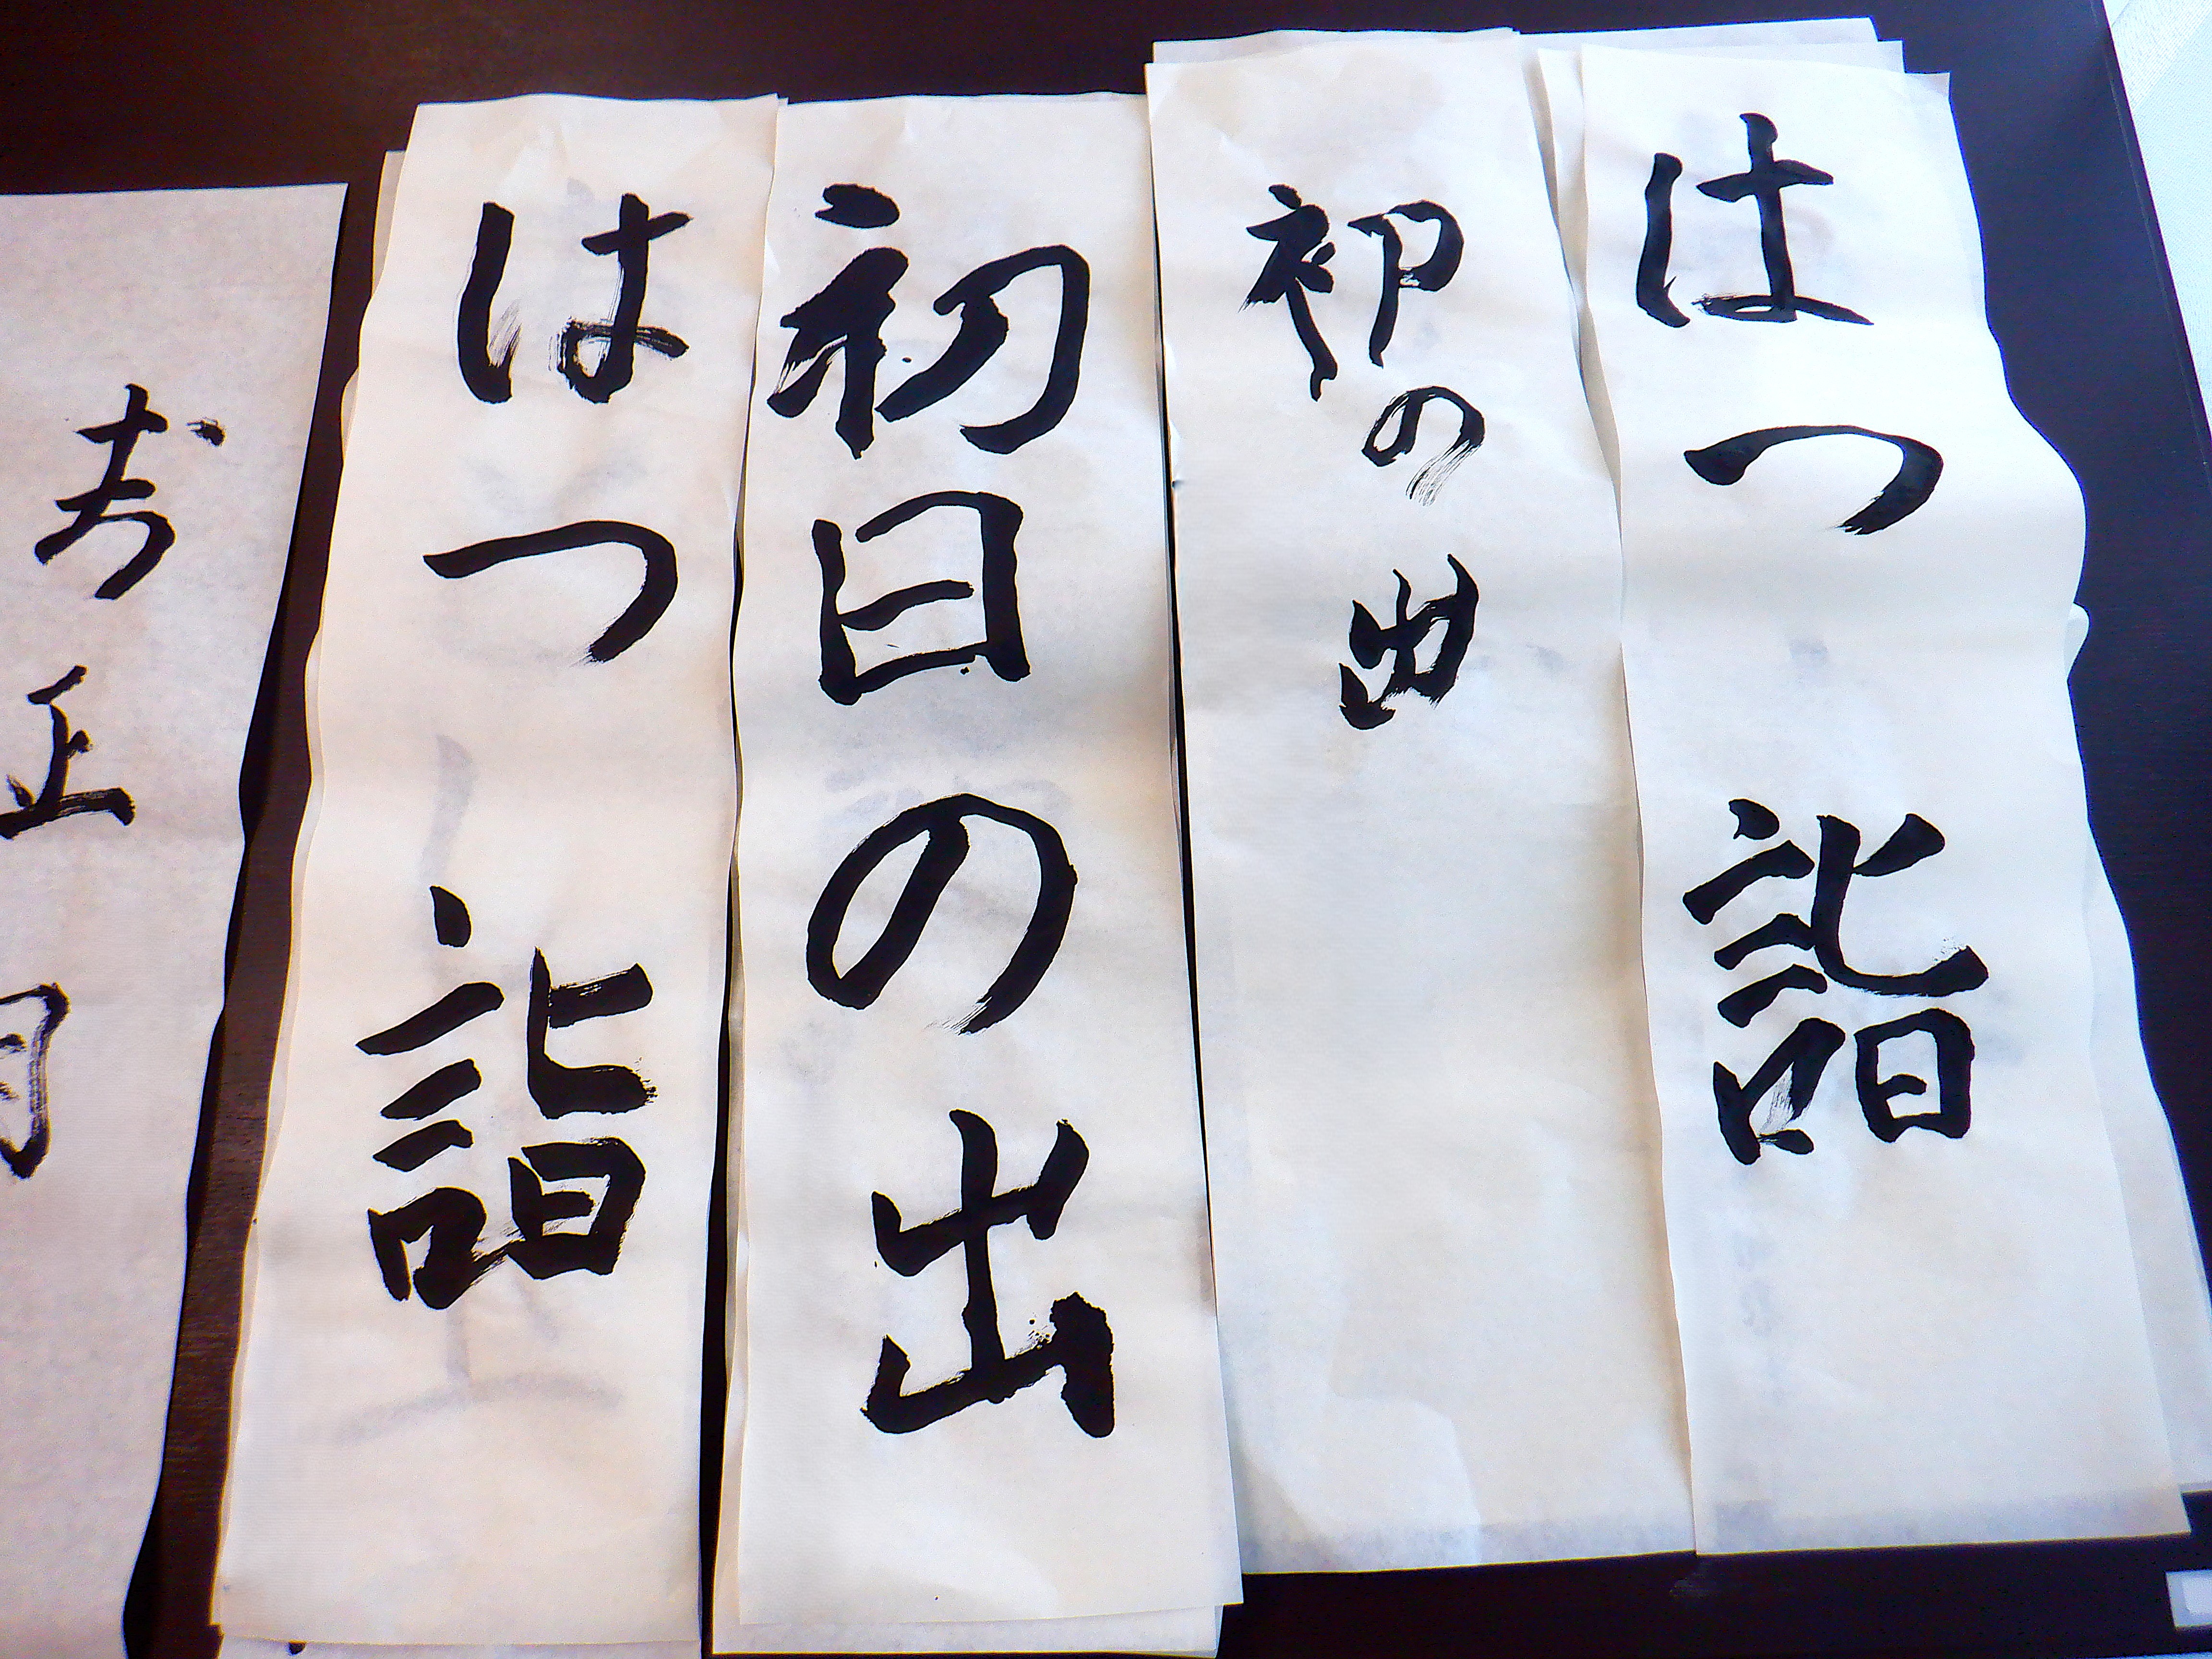 はつ詣
初の出
初日の出
はつ詣
お正月